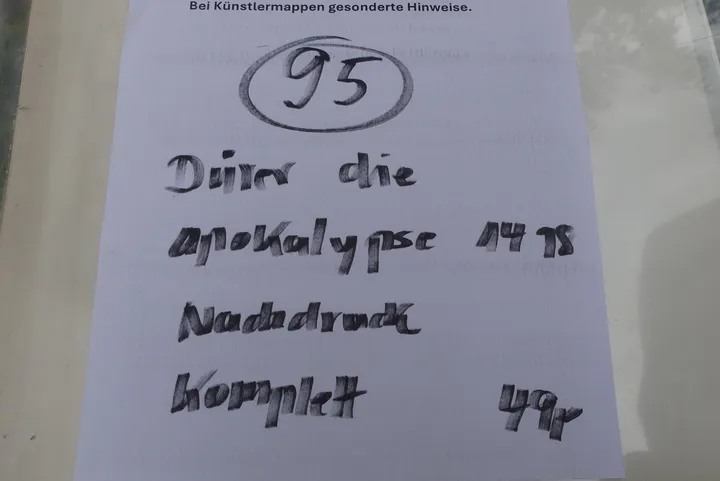 Bei Künstlermappen gesonderte Hinweise.
95
Dürer die
apokalypse 1498
Nachdruck
Komplett 49,-